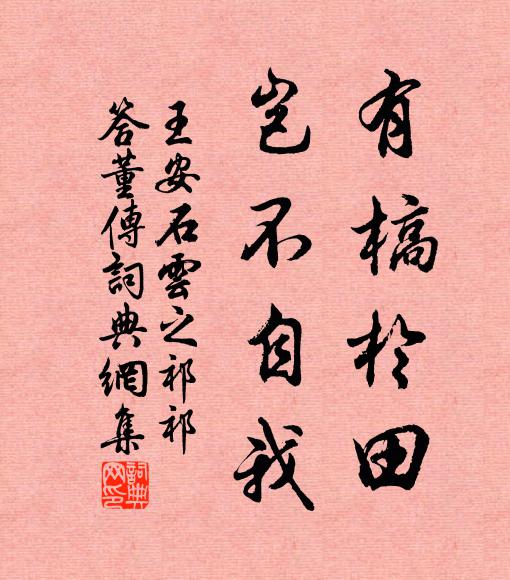 有槁於田
豈不自我
王安石雲之祁祁
答董傳詞典網集
詞典
网印